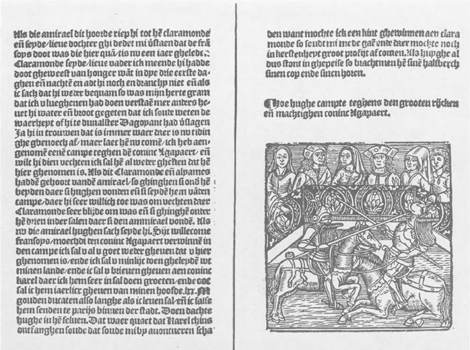 Als die amirael dit hoorde riep hi tot hē claramonde
eñ seyde. lieue dochter ghi dedet mi v̄staen dat de frā
soys doot was die hier quā tis nv een iaer gheledē.
Claramonde seyde. lieue vader ick meende hi hadde
doot gheweest van honger wāt in dye drie eerste da
ghen eñ nachtē en at hi noch en dranc hy niet eñ als
ic sach dat hi weter bequam so was mijn herte gram
dat ick v lueghenen had doen verstaē mer anders he
uet hi water eñ broot gegeten dat ick soude weten de
waerheyt of hi v dinastel Dagopant had v̄slagen
Ja hi in trouwen dat is ymmer waer daer is nv tidin
ghe ghenoech af: maer laet hē nv comē. ick heb aen
genomē eenē campe teghen dē coninc Agapaert. eñ
wilt hi dien vechten ick sal hē al weter gheuen dat hē
hier ghenomen is. Als dit Claramonde eñ alyames
hadde gehoort vanden amirael. so ghinghen si onā hē
beyden daer si hughen vonden eñ si seydē hem vādē
campe. daer hi seer willich toe was om vechten daer
Claramonde seer blijde om was eñ si ghinghē onder
hē drien inder salen daer si den ammirael vondē. Als
nv die amirael hughen sach seyde hi. Sijt willecome
fransoys. moechdi den coninc Agapaert verwinnē in
den campe ick sal v al v goet weter gheuen dat v hier
ghenomen is. ende ick sal v minlijc doen gheleydē wt
minen lande. ende ic sal v brieuen gheuen aen coninc
karel dat ick hem seer in sal doen groeten. ende ooc
sal ic hem iaerlicx gheuen van minen hoofde .xx. M
gouden ducaten also langhe als ic leuen sal. eñ ic salse
hem senden te parijs binnen der stadt. Doen dachte
hughe in hē seluen. Dat waer quaet dat karel chins
ontfanghen soude dat soude mi by auontueren scha
den want mochte ick een kint ghewinnen aen clara
monde so soudet mi mede gaē ende daer mochte noch
in kerstenheyt groot profijt af comen. Als hughe al
dus stont in ghepeise so brachtmen hē sinē halsberch
sinen cop ende sinen horen.
¶Hoe hughe campte teghens den grooten rijcken
eñ machtighen coninc Agapaert.